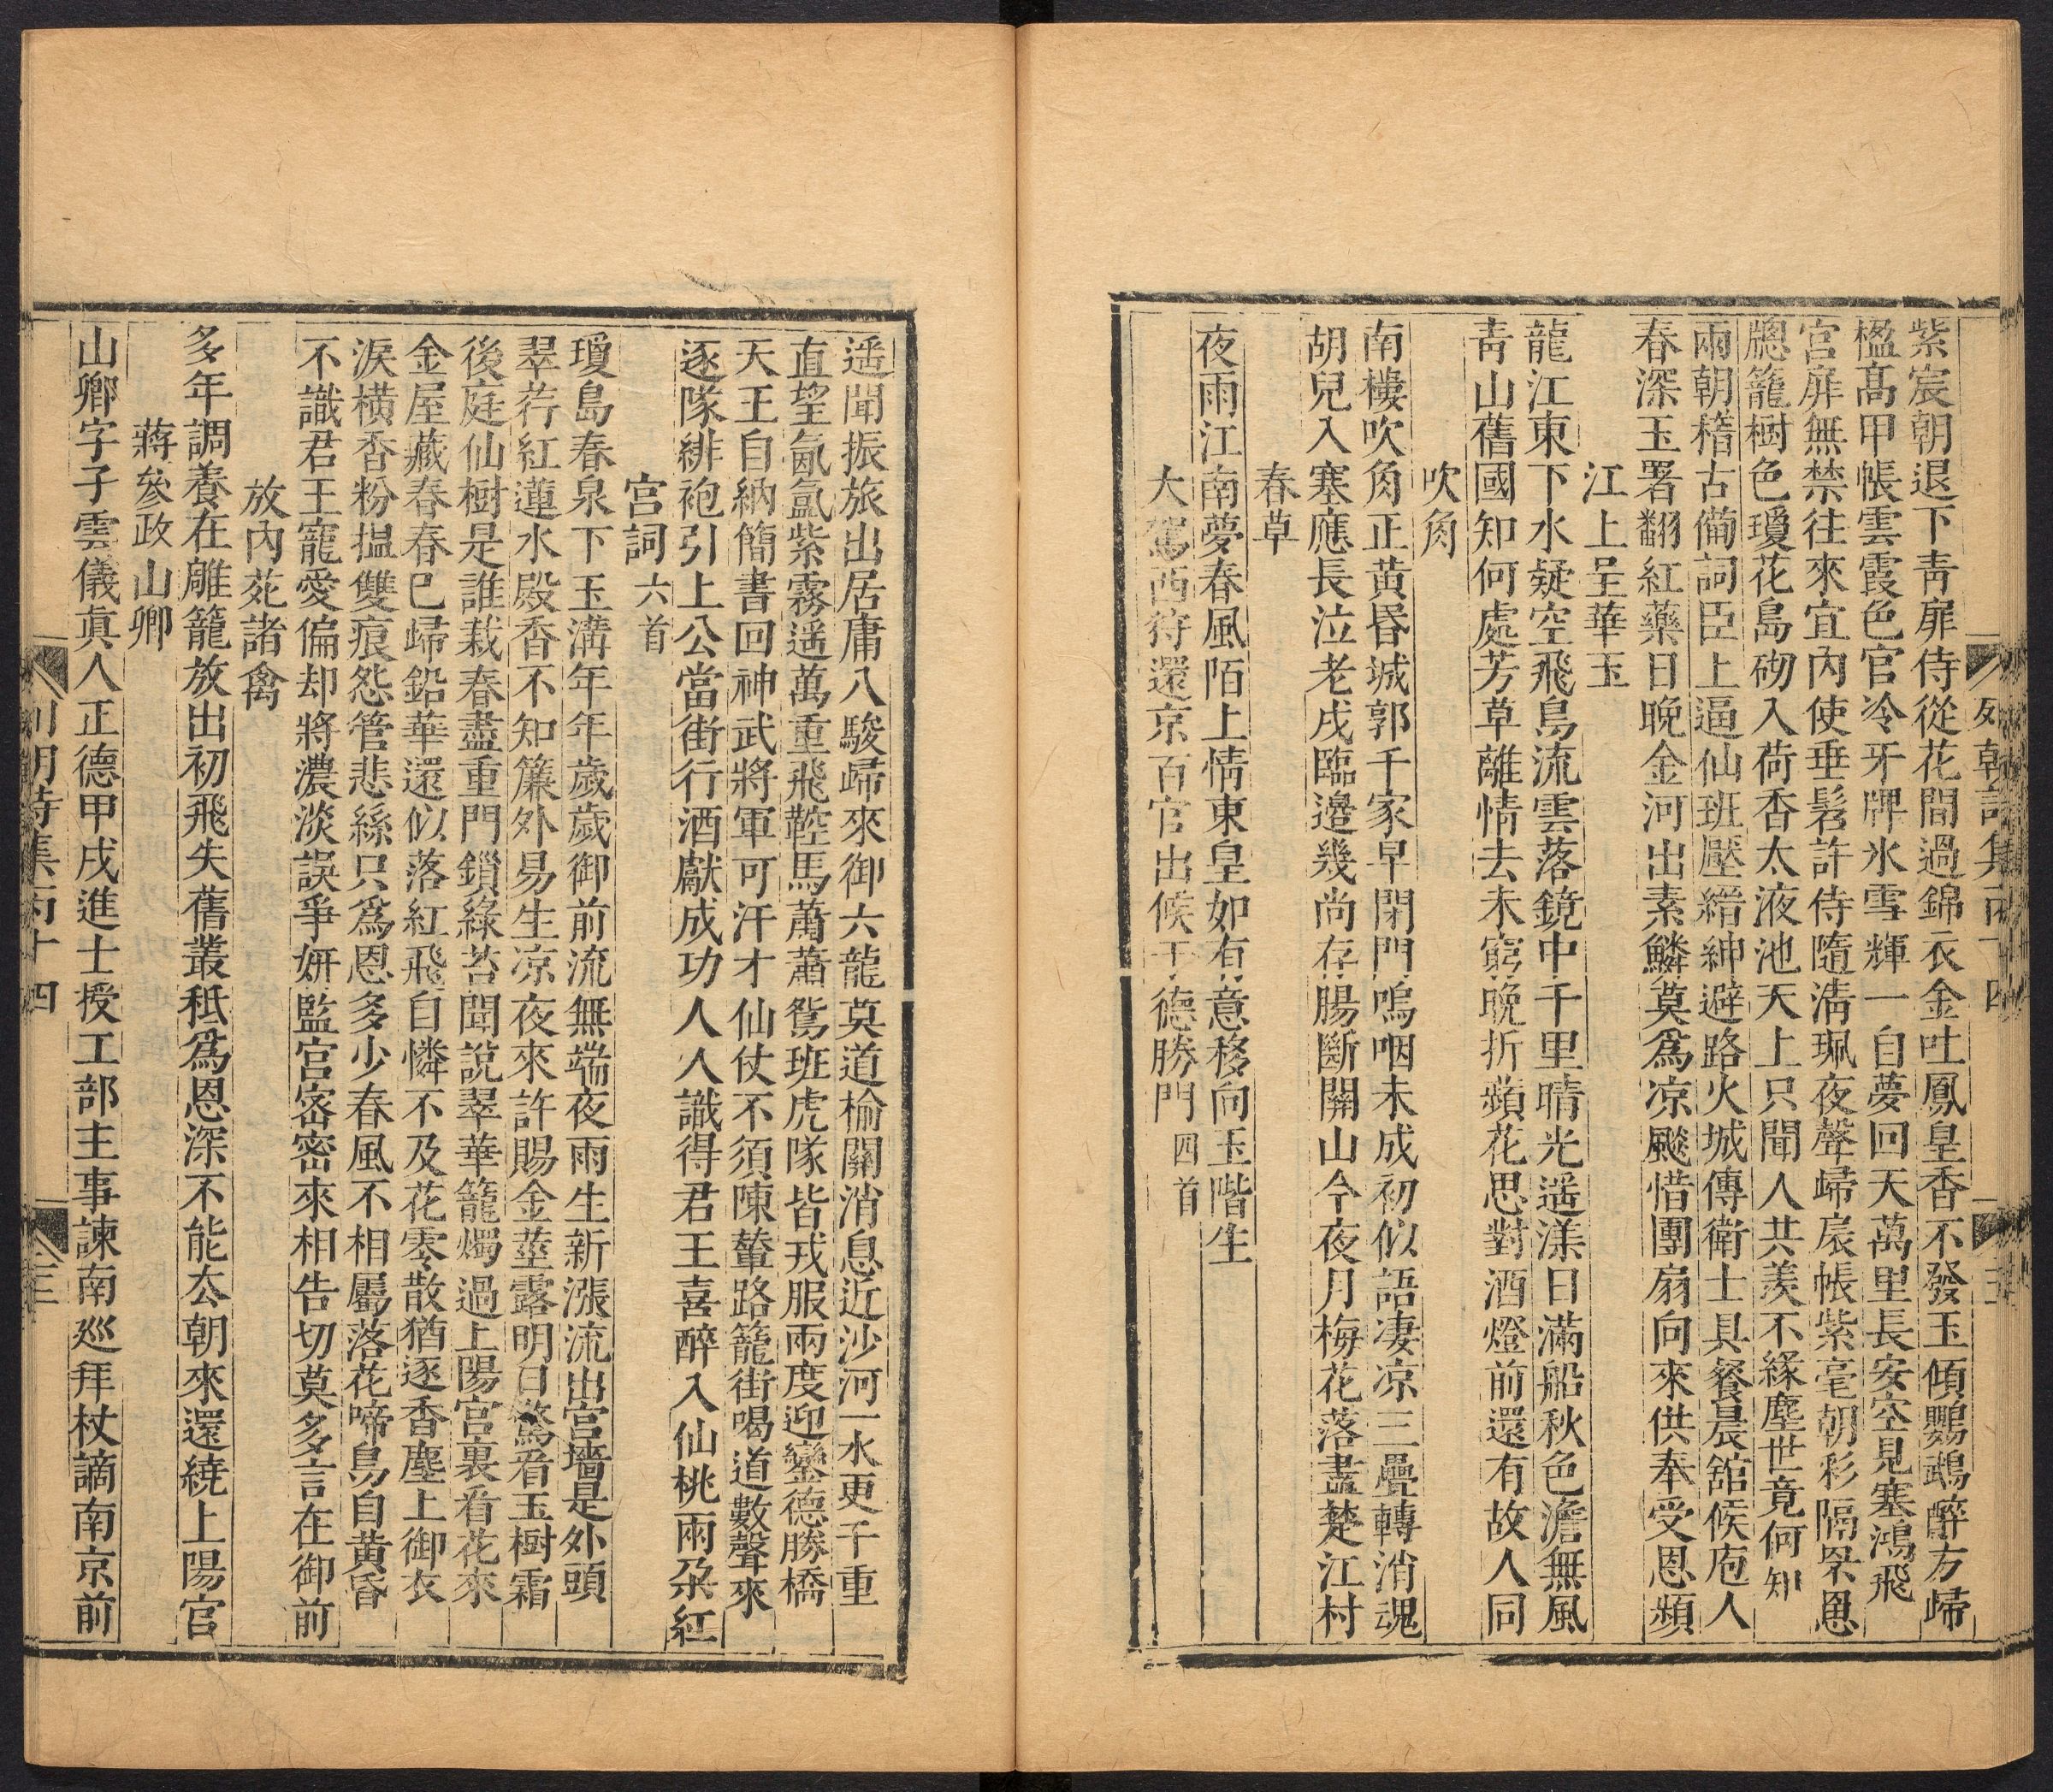 紫宸朝退下靑扉侍從花間過錦衣金吐鳳皇香不發玉傾鸚鵡醉方歸
楹高甲帳雲霞色官冷牙牌氷雪輝一自夢回天萬里長安空見塞鴻飛
宮扉無禁往來宜內使垂髫許侍隨淸珮夜聲歸扆帳紫毫朝彩隔罘罳
牕籠樹色瓊花島砌入荷香太液池天上只聞人共羨不緣塵世竟何知
兩朝稽古備詞臣上逼仙班壓縉紳避路火城傳衛士具餐晨舘候庖人
春深玉署翻紅藥日晚金河出素鱗莫爲凉颸惜團扇向來供奉受恩頻
江上呈華玉
龍江東下水疑空飛鳥流雲落鏡中千里晴光遥漾日滿船秋色澹無風
靑山舊國知何處芳草離情去未窮晚折蘋花思對酒燈前還有故人同
吹角
南樓吹角正黃昏城郭千家早閉門嗚咽未成初似語凄凉三疊轉消魂
胡兒入塞應長泣老戍臨邊幾尚存腸斷關山今夜月梅花落盡楚江村
春草
夜雨江南夢春風陌上情東皇如有意移向玉階生
大駕西狩還京百官出候于德勝門 四首
列朝詩集丙十四
三
遥聞振旅出居庸八駿歸來御六龍莫道楡關消息近沙河一水更千重
直望氤氳紫霧遥萬重飛鞚馬蕭蕭鴛班虎隊皆戎服兩度迎鑾德勝橋
天王自納簡書回神武將軍可汗才仙仗不須陳輦路籠街喝道數聲來
逐隊緋袍引上公當街行酒獻成功人人識得君王喜醉入仙桃兩朶紅
宮詞 六首
瓊島春泉下玉溝年年歲歲御前流無端夜雨生新漲流出宮墻是外頭
翠荇紅蓮水殿香不知簾外易生凉夜來許賜金莖露明日驚看玉樹霜
後庭仙樹是誰栽春盡重門鎖綠苔聞說翠華籠燭過上陽宮裏看花來
金屋藏春春巳歸鉛華還似落紅飛自憐不及花零散猶逐香塵上御衣
淚橫香粉揾雙痕怨管悲絲只爲恩多少春風不相屬落花啼鳥自黃昏
不識君王寵愛偏却將濃淡誤爭姸監宮密密來相告切莫多言在御前
放內苑諸禽
多年調養在雕籠放出初飛失舊叢秖爲恩深不能去朝來還繞上陽宮
蔣參政山卿
山卿字子雲儀眞人正德甲戌進士授工部主事諫南廵拜杖謫南京前
列朝詩集丙十四
三